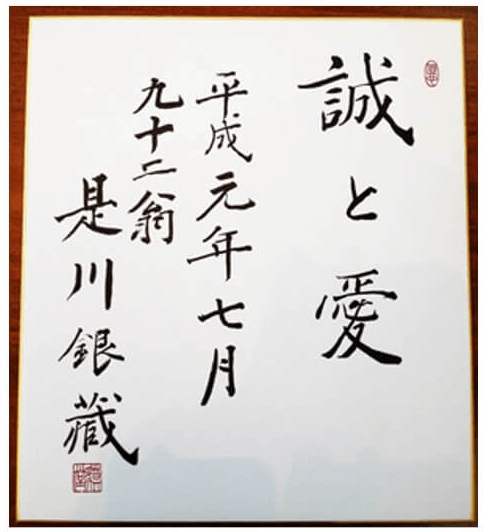 誠と愛
平成元年七月
九十二翁
是川銀藏